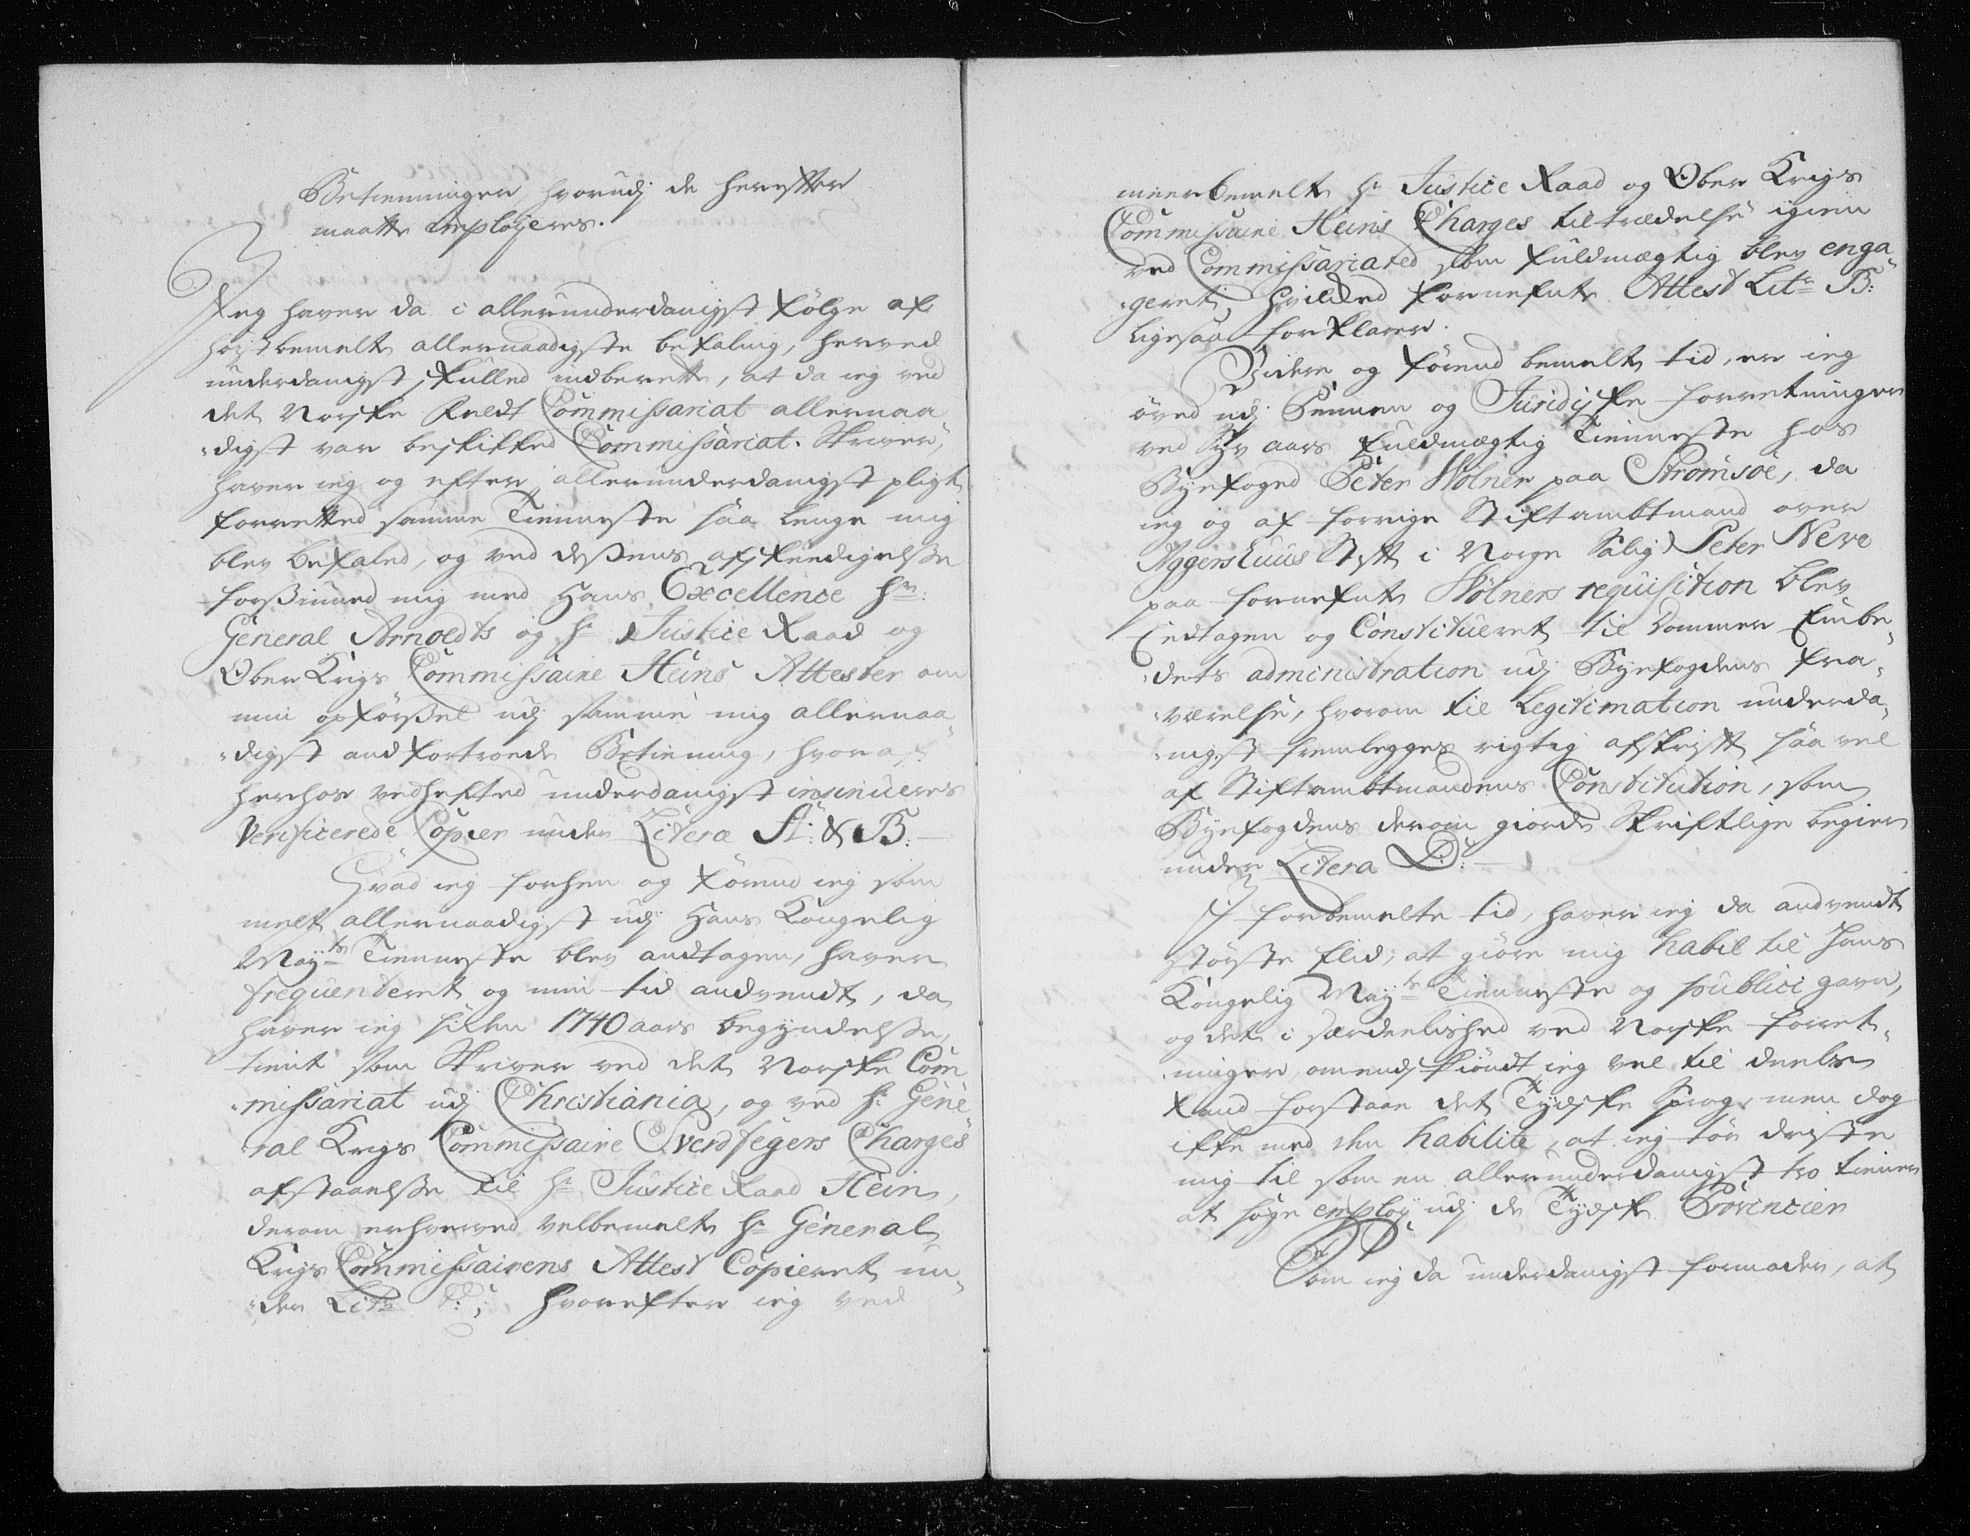 Betienninger, hvorudj de herefter
maatte employeres.
Jeg haver da i allerunderdanigst følge af
høystbemelte allernaadigste befaling, herved
underdanigst skulled indberette, at da ieg ved
det Norske Feldt Commissariat allernaa
digst var beskikked Commissariat-Skriver,
haver ieg og efter allerunderdanigst pligt
forretted samme Tienneste saa lenge mig
blev befaled, og ved desens afskeedigelse
forsiuned mig med Hans Excellence Hr:
General Arnoldts og Hr Justice Raad og
Ober Krigs Commissaire Heins Attester om
min opførsel udj samme mig allernaa
digst andfortroede Betiening, hvoraf
herhos vedhefted underdanigst insinueres
Verificerede Copier under Litera A: & B:
Hvad ieg forhen og førend ieg som
melt allernaadigst udj Hans Kongelig
Mayts Tienneste blev andtagen, haver
frequenteret og min tid andvendt, da
haver ieg siden 1740 aars begyndelse,
tient som Skriver ved det Norske Com
missariat udj Christiania, og ved Hr Gene
ral Krigs Commissaire Sverdfegers Charges
afstaaelse til Hr Justice Raad Hein,
derom erhverved velbemelte Hr General
Krigs Commissairens Attest Copieret un
der Litr C:; hvorefter ieg ved
meerbemelte Hr Justice Raad og Ober Krigs
Commissaire Heins Charges tiltrædelse igien
ved Commissariated som fuldmægtig blev enga
geret, hvilked fornefnte Attest Litr B:
ligesaa forklarer.
Videre og førend bemelte tid, er ieg
øved udj Pennen og Juridiske forretninger
ved Syv aars fuldmægtig Tienneste hos
Byefoged Peter Wølner paa Strømsøe, da
ieg og af forrige Stiftambtmand over
Aggershuus Stift i Norge Salig Peter Neve
paa fornefnte Wølners requisition blev
Eedtagen og Constitueret til Dommer Embe
dets administration udj Byefogdens fra
værelse, hvorom til Legitimation underda
nigst fremlegges rigtig afskrift saa vel
af Stiftambtmandens Constitution, som
Byefogdens derom giorde Skriftlige begier
under Litera D:
I forbemelte tid, haver ieg da andvendt
største flid, at giøre mig habil til Hans
Kongelig Mayts Tienneste og publici gavn,
og det i særdeelished ved Norske forret
ninger, omendskiøndt ieg vel til deels
kand forstaae det Tydske Sprog, men dog
icke med den habilite, at ieg tør driste
mig til som en allerunderdanigst tro tiener
at søge employ udj de Tydske Provincier
Som ieg da underdanigst formoder, at